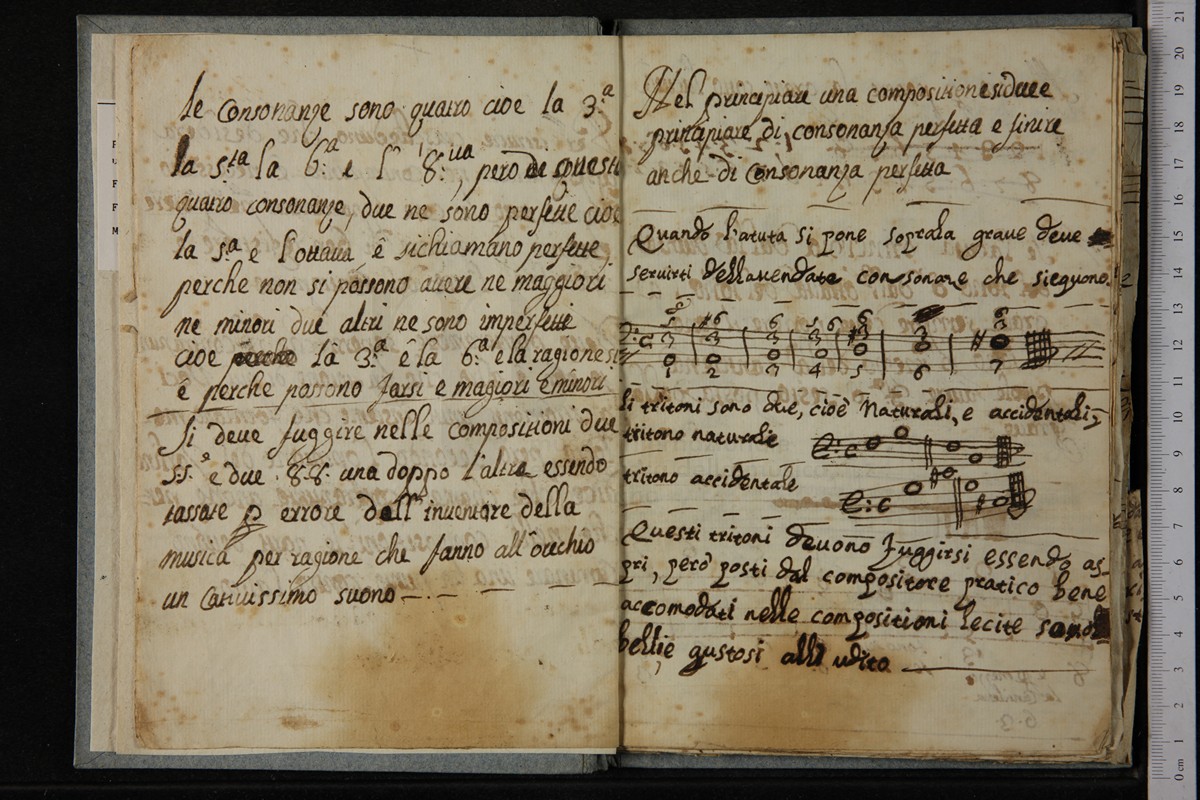 le Consonanze sono quatro cioe la 3.ª
la 5.ta la 6.ª e l'8.ua, pero de queste
quatro consonanze, due ne sono perfette cioe
la 5.ª e l'ottaua ê sichiamano perfette
perche non si possono auere ne maggiori
ne minori due altri ne sono imperfette
cioe la 3.ª ê la 6.ª e la ragione
ê perche possono farsi e magiori e minori
Si deue fuggire nelle compositioni due
55.e e due 8.8. una doppo l'altra essendo
tassate p errore dall'inuentore della
musica per ragione che fanno all'orechio
un catiuissimo suono
Nel principiare una compositione si deue
principiare di consonanza perfetta e finire
anche di consonanza perfetta
Quando l'atuta si pone soprala graue deue
seruirti dellauendate consonare che sieguono
5 #6 6 5 6 6 6
3 3 3 3 #3 3 3
1 2 3 4 5 6 7
li tritoni sono due, cioè Naturali, e accidentali;
tritono naturale
tritono accidentale
Questi tritoni deuono fuggirsi essendo as-
pri, però posti dal compositore pratico bene
accomodati nelle compositioni lecite sono
belli e gustosi all udito